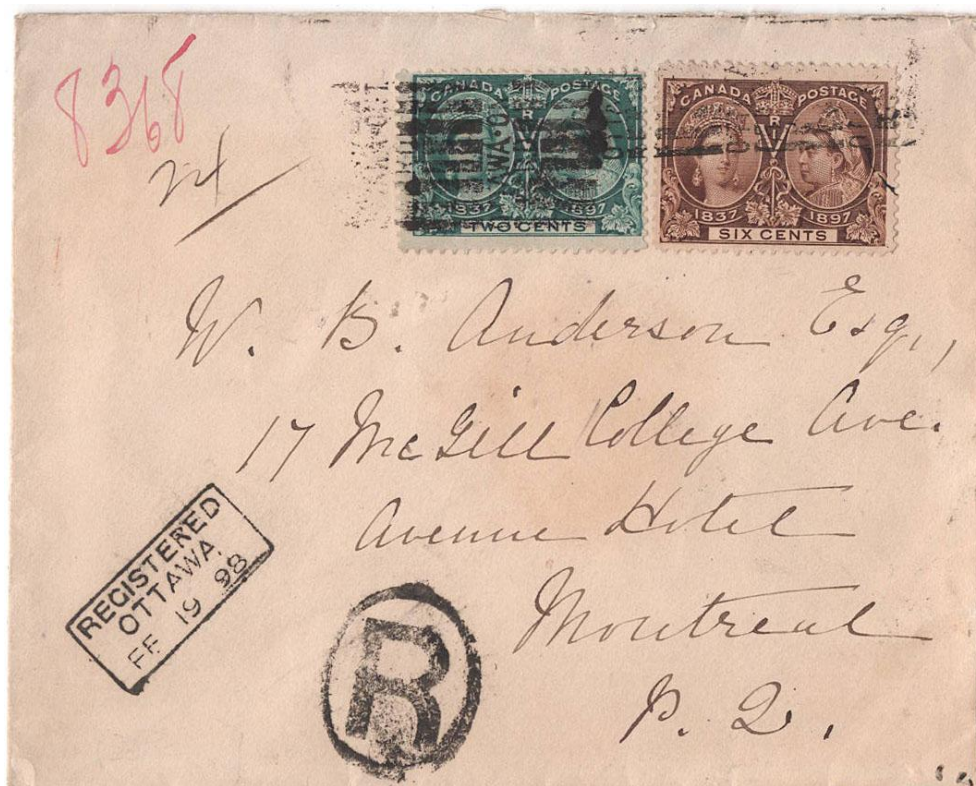 8368
24
CANADA POSTAGE
1837 1897
TWO CENTS
CANADA POSTAGE
1837 1897
SIX CENTS
W. B. Anderson Esq.,
17 McGill College Ave.
Avenue Hotel
Montreal
P. Q.
REGISTERED
OTTAWA,
FE 19 98
R